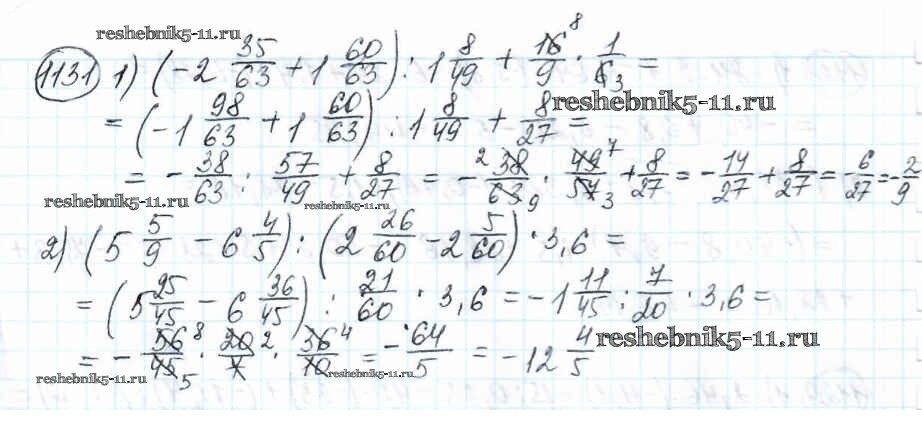 reshebnik5-11.ru
1131 1) (-2 35/63 + 1 60/63) : 1 8/49 + 16/9 8 · 1/6 3 =
reshebnik5-11.ru
= (-1 98/63 + 1 60/63) : 1 8/49 + 8/27 =
= - 38/63 : 57/49 + 8/27 = - 2 38/63 9 · 49 7/57 3 + 8/27 = - 14/27 + 8/27 = - 6/27 = - 2/9
reshebnik5-11.ru reshebnik5-11.ru
2) (5 5/9 - 6 4/5) : (2 26/60 - 2 5/60) · 3,6 =
= (5 25/45 - 6 36/45) : 21/60 · 3,6 = -1 11/45 : 7/20 · 3,6 =
= - 56 8/45 5 · 20 2/7 · 36 4/10 = - 64/5 = -12 4/5
reshebnik5-11.ru
reshebnik5-11.ru reshebnik5-11.ru